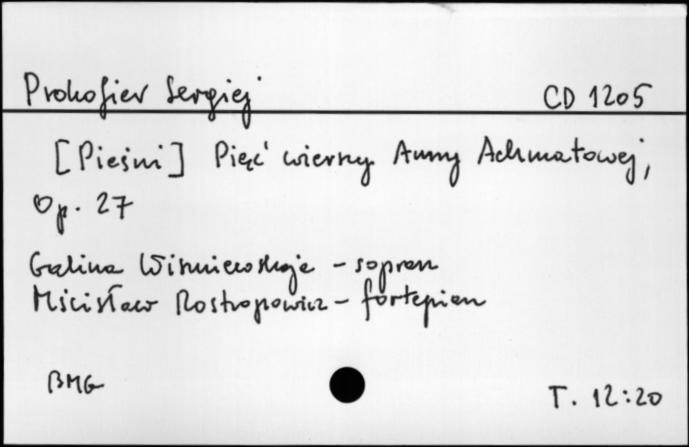 Prokofiew Sergiej CD 1205
[Pieśni] Pięć wierszy Anny Achmatowej,
Op. 27
Galina Wiszniewskaja – sopran
Mścisław Rostropowicz – fortepian
BMG T. 12:20